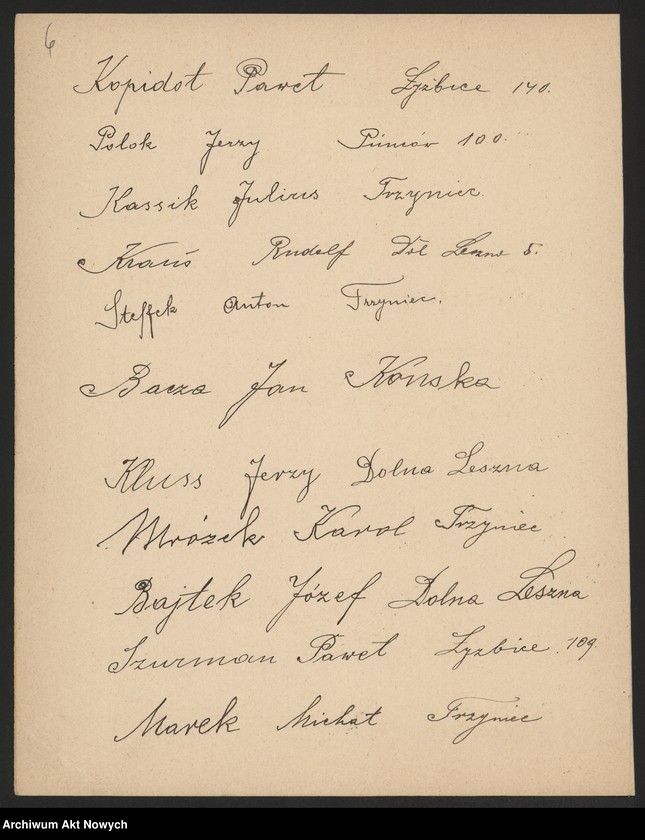 6
Kopidoł Paweł Łyżbice 140.
Polok Jerzy Puńców 100.
Kassik Julius Trzyniec.
Kraus Rudolf Dol Leszna 5.
Steffek Anton Trzyniec.
Bacza Jan Końska
Kluss Jerzy Dolna Leszna
Mrózek Karol Trzyniec
Bajtek Józef Dolna Leszna
Szurman Paweł Łyżbice 109.
Marek Michał Trzyniec
Archiwum Akt Nowych